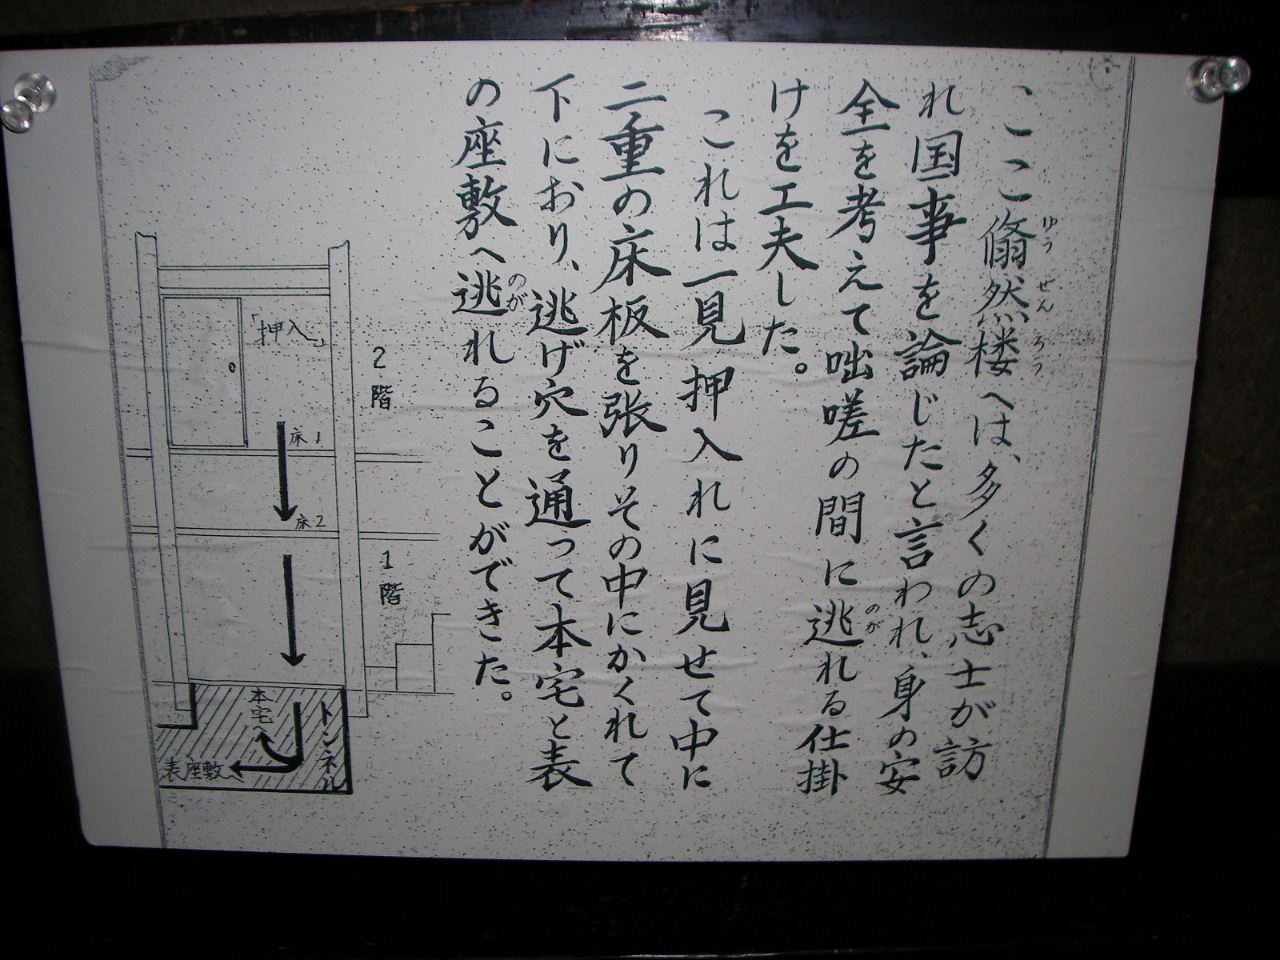 ここ翛然楼へは、多くの志士が訪
ゆうぜんろう
れ国事を論じたと言われ、身の安
全を考えて咄嗟の間に逃れる仕掛
のが
けを工夫した。
これは一見押入れに見せて中に
二重の床板を張りその中にかくれて
下におり、逃げ穴を通って本宅と表
の座敷へ逃れることができた。
のが
「押入」
2階
床1
床2
1階
本宅
トンネル
表座敷へ